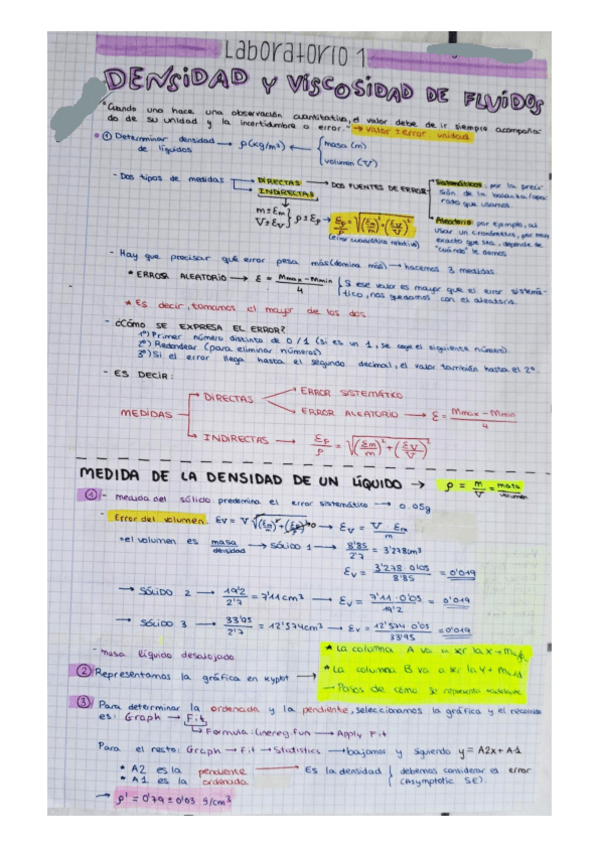 Laboratorio 1
DENSIDAD Y VISCOSIDAD DE FLUIDOS
"Cuando uno hace una observación cuantitativa, el valor debe de ir siempre acompaña-
do de su unidad y la incertidumbre o error." → valor ± error unidad
① Determinar densidad de líquidos → ρ(kg/m³) ← { masa (m)
volumen (V)
- Dos tipos de medidas → DIRECTAS → DOS FUENTES DE ERROR → Sistemáticos: por la preci-
sión de la balanza/apa-
rado que usamos.
→ INDIRECTAS
m ± Em
V ± EV } ρ ± Eρ → Eρ/ρ = √(Em/m)² + (EV/V)²
(error cuadrático relativo)
Aleatorio: por ejemplo, al
usar un cronómetro, por muy
exacto que sea, depende de
"cuándo" le damos
- Hay que precisar qué error pesa más (domina más) → hacemos 3 medidas.
* ERROR ALEATORIO → ε = Mmax - Mmin / 4 { Si ese valor es mayor que el error sistemá-
tico, nos quedamos con el aleatorio.
* Es decir, tomamos el mayor de los dos.
- ¿CÓMO SE EXPRESA EL ERROR?
1º) Primer número distinto de 0/1 (si es un 1, se coge el siguiente número).
2º) Redondear (para eliminar números)
3º) Si el error llega hasta el segundo decimal, el valor también hasta el 2º.
- ES DECIR:
MEDIDAS → DIRECTAS → ERROR SISTEMÁTICO
→ ERROR ALEATORIO → ε = Mmax - Mmin / 4
→ INDIRECTAS → Eρ/ρ = √(Em/m)² + (EV/V)²
MEDIDA DE LA DENSIDAD DE UN LÍQUIDO → ρ = m/V = masa/volumen
① - medida del sólido: predomina el error sistemático → 0.05g
- Error del volumen: EV = V √(Em/m)² + (Eρ/ρ)² → 0 → EV = V Em / m
* el volumen es masa/densidad → SÓLIDO 1 → 8'85/2'7 = 3'278cm³
EV = 3'278 · 0'05 / 8'85 = 0'019
→ SÓLIDO 2 → 19'2/2'7 = 7'11cm³ → EV = 7'11 · 0'05 / 19'2 = 0'019
→ SÓLIDO 3 → 33'95/2'7 = 12'574cm³ → EV = 12'574 · 0'05 / 33'95 = 0'019
- masa líquido desalojado
② Representamos la gráfica en Kyplot →
* La columna A va a ser la x
* La columna B va a ser la y
→ Pasos de cómo se representa
③ Para determinar la ordenada y la pendiente, seleccionamos la gráfica y el recorrido
es: Graph → Fit
Formula: linereg.fun → Apply Fit
Para el resto: Graph → Fit → Statistics → bajamos y siguiendo y = A2x + A1
* A2 es la pendiente → Es la densidad { debemos considerar el error
* A1 es la ordenada (Asymptotic SE).
→ ρ' = 0'79 ± 0'03 g/cm³